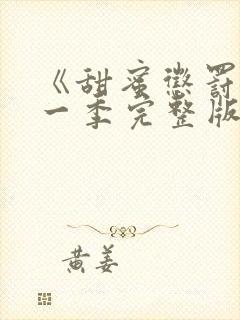 《甜蜜惩罚
一季完整版
黄姜